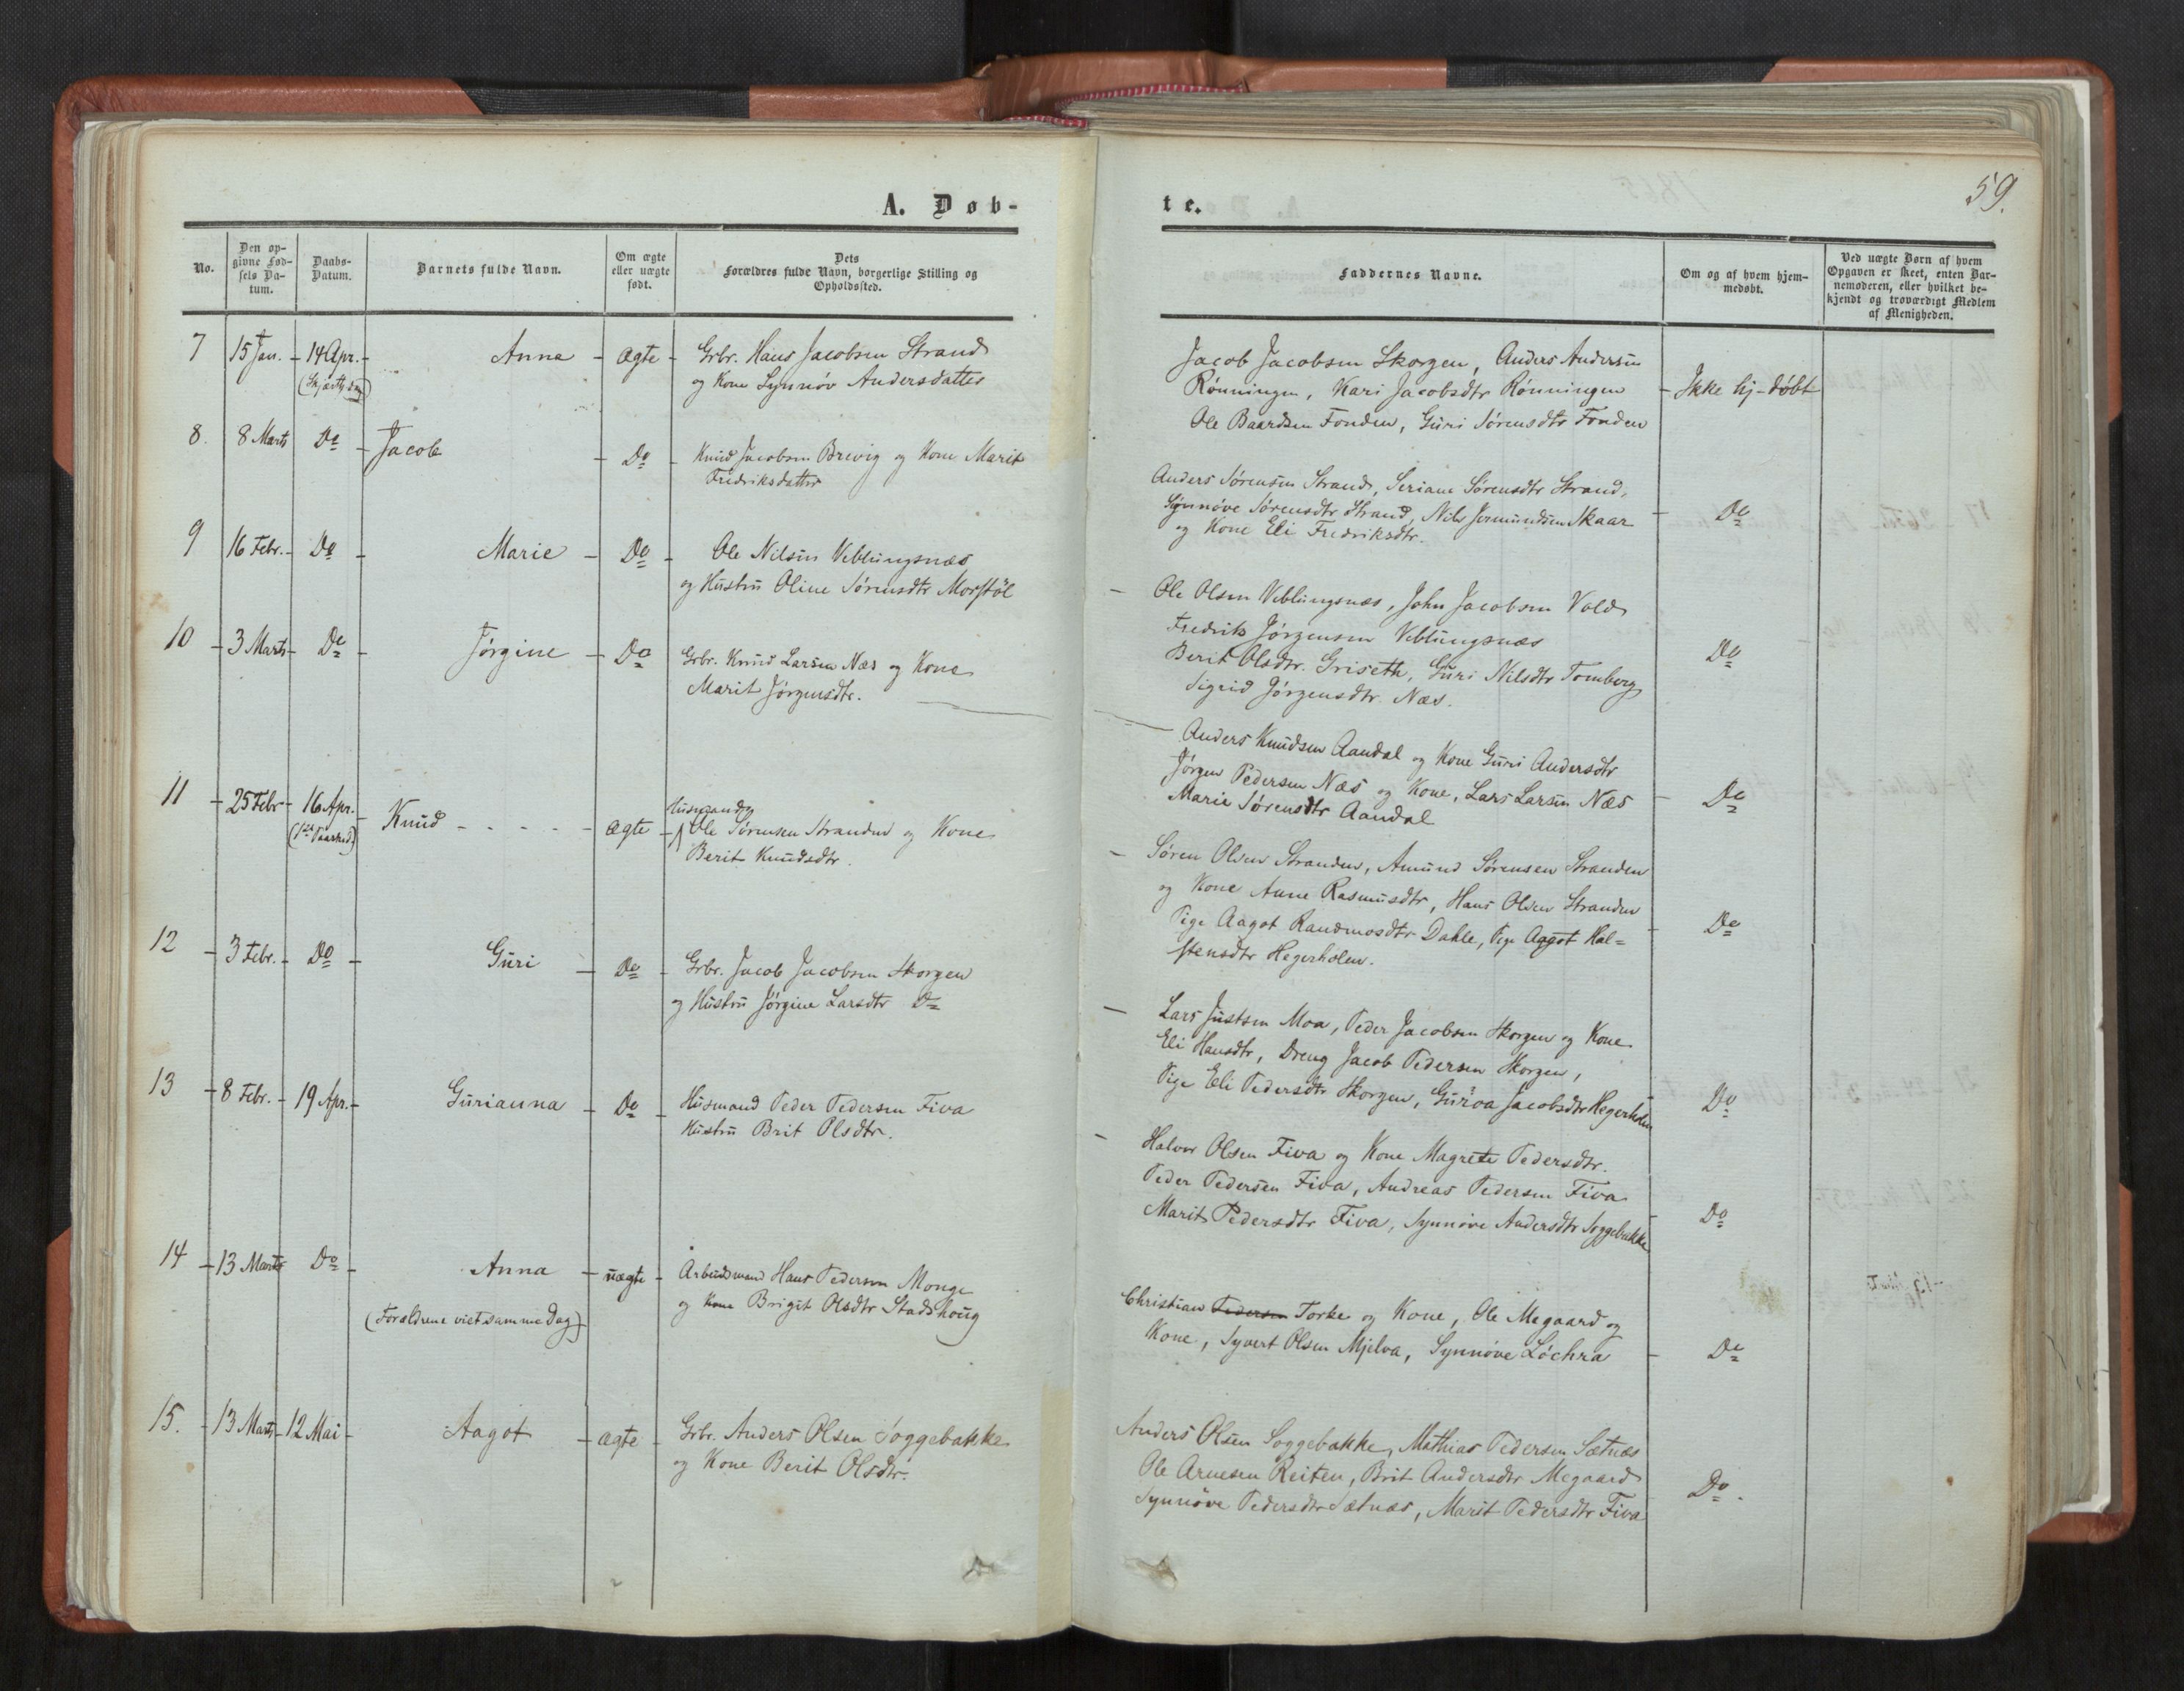 59.
A. Døb-
te.
No.
Den op-
givne Fød-
sels Da-
tum.
Daabs-
Datum.
Barnets fulde Navn.
Om ægte
eller uægte
født.
Dets
Forældres fulde Navn, borgerlige Stilling og
Opholdssted.
Faddernes Navne.
Om og af hvem hjem-
medøbt.
Ved uægte Børn af hvem
Opgaven er skeet, enten Bar-
nemoderen, eller hvilket be-
kjendt og troværdigt Medlem
af Menigheden.
7 15 Jan. - 14 Apr. - Anna - ægte - Grbr. Hans Jacobsen Strand
(Skjærthsdag) og Kone Synnøv Andersdatter
Jacob Jacobsen Skorgen, Anders Andersen
Rønningen, Kari Jacobsdtr Rønningen - Ikke hj-døbt
Ole Baardsen Fonden, Guri Sørensdtr Fonden
8. 8 Marts Do - Jacob - Do - Knud Jacobsen Brevig og Kone Marit
Fredriksdatter
Anders Sørensen Strand, Seriane Sørensdtr Strand,
Synnøve Sørensdtr Strand, Nils Jermundsen Skaar - Do
og Kone Eli Fredriksdtr.
9 16 Febr. - Do - Marie - Do - Ole Nilsen Veblungsnæs
og Hustru Oline Sørensdtr Morstøl
- Ole Olsen Veblungsnæs, John Jacobsen Vold
Fredrik Jørgensen Veblungsnæs
Berit Olsdtr. Griseth, Guri Nilsdtr Tomberg Do
Sigrid Jørgensdtr. Næs.
10 - 3 Marts - Do - Jørgine - Do Grbr. Knud Larsen Næs og Kone
Marit Jørgensdtr.
Anders Knudsen Aandal og Kone Guri Andersdtr
Jørgen Pedersen Næs og Kone, Lars Larsen Næs - Do
Marie Sørensdtr Aandal
11 - 25 Febr - 16 Apr. - Knud - - - - - ægte - Husmand
(1ste Paasked.) Ole Sørensen Stranden og Kone
Berit Knudsdtr.
- Søren Olsen Stranden, Amund Sørensen Stranden
og Kone Anne Rasmusdtr, Hans Olsen Stranden
Pige Aagot Randmosdtr Dahle, Pige Aagot Hal= - Do
stensdtr Hegerholen.
12 - 3 Febr. - Do - Guri - Do - Grbr. Jacob Jacobsen Skorgen
og Hustru Jørgine Larsdtr Do
- Lars Justsen Moa, Peder Jacobsen Skorgen og Kone
Eli Hansdtr, Dreng Jacob Pedersen Skorgen,
Pige Eli Pedersdtr Skorgen, Guroa Jacobsdtr Hegerholen - Do
13 - 8 Febr. - 19 Apr. - Gurianna - Do - Husmand Peder Pedersen Fiva
Hustru Brit Olsdtr.
- Halvor Olsen Fiva og Kone Magrete Pedersdtr.
Peder Pedersen Fiva, Andreas Pedersen Fiva
Marit Pedersdtr Fiva, Synnøve Andersdtr Soggebakke - Do
14 - 13 Marts Do - Anna - uægte - Arbeidsmand Hans Pedersen Monge
(Forældrene viet samme Dag) og Kone Brigit Olsdtr Stadshoug
Christian Pedersen Torke og Kone, Ole Megaard og
Kone, Syvert Olsen Mjelva, Synnøve Løchra - Do
15. - 13 Marts - 12 Mai - Aagot - ægte - Grbr. Anders Olsen Soggebakke
og Kone Berit Olsdtr.
Anders Olsen Soggebakke, Mathias Pedersen Sætnæs
Ole Arnesen Reiten, Brit Andersdtr Megaard Do.
Synnøve Pedersdtr Sætnæs, Marit Pedersdtr Fiva